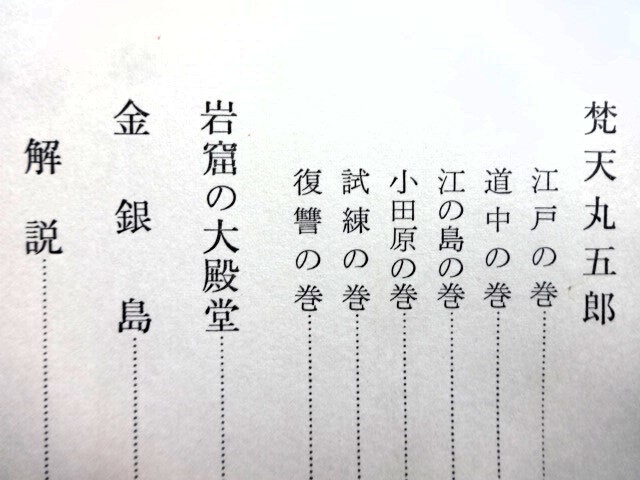 梵天丸五郎
江戸の巻
道中の巻
江の島の巻
小田原の巻
試練の巻
復讐の巻
岩窟の大殿堂
金銀島
解説